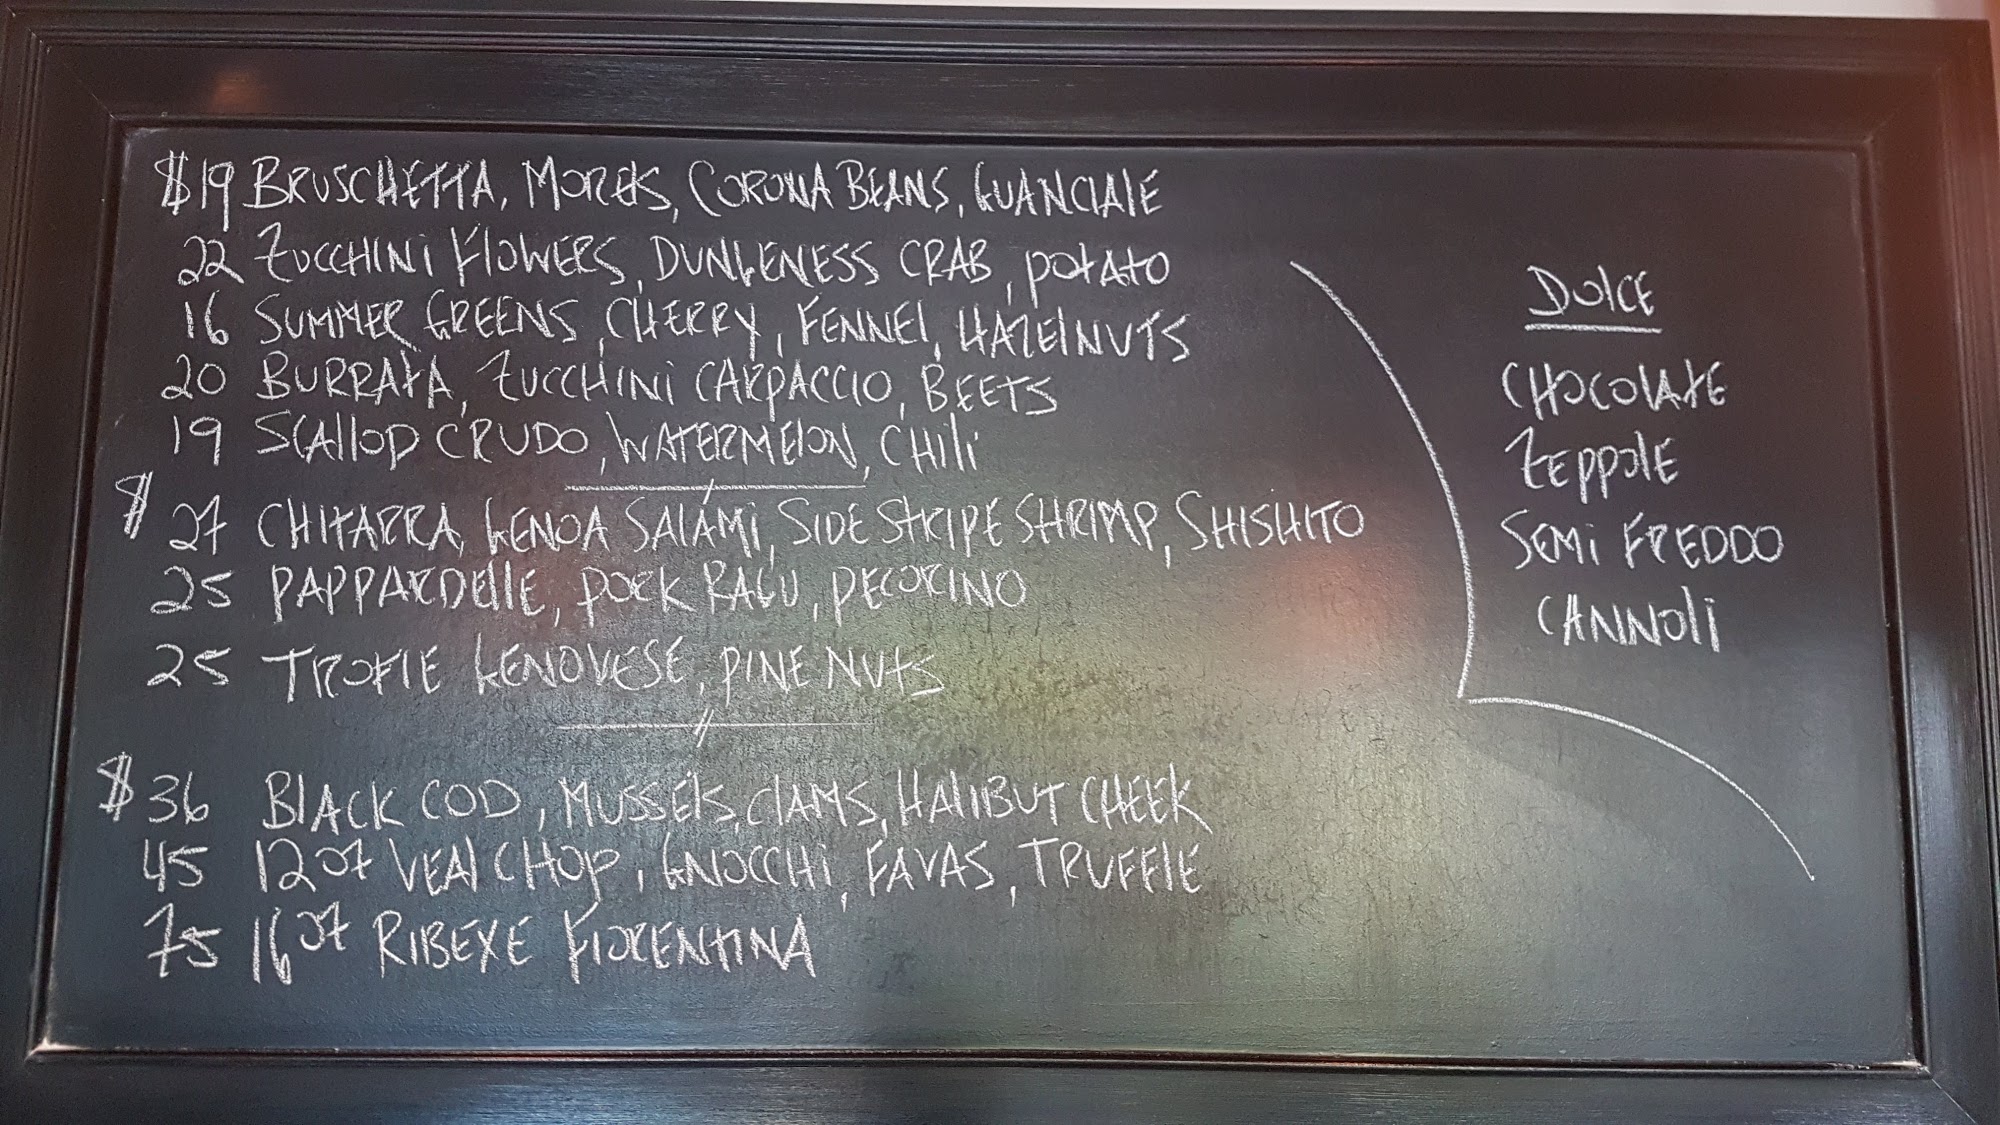 $19 BRUSCHETTA, MORELS, CORONA BEANS, GUANCIALE
22 ZUCCHINI FLOWERS, DUNGENESS CRAB, POTATO
16 SUMMER GREENS, CHERRY, FENNEL, HAZELNUTS
20 BURRATA, ZUCCHINI CARPACCIO, BEETS
19 SCALLOP CRUDO, WATERMELON, CHILI
$27 CHITARRA, GENOA SALAMI, SIDE STRIPE SHRIMP, SHISHITO
25 PAPPARDELLE, PORK RAGU, PECORINO
25 TROFIE GENOVESE, PINE NUTS
$36 BLACK COD, MUSSELS, CLAMS, HALIBUT CHEEK
45 12oz VEAL CHOP, GNOCCHI, FAVAS, TRUFFLE
75 16oz RIBEYE FIORENTINA
DOLCE
CHOCOLATE
ZEPPOLE
SEMI FREDDO
CANNOLI